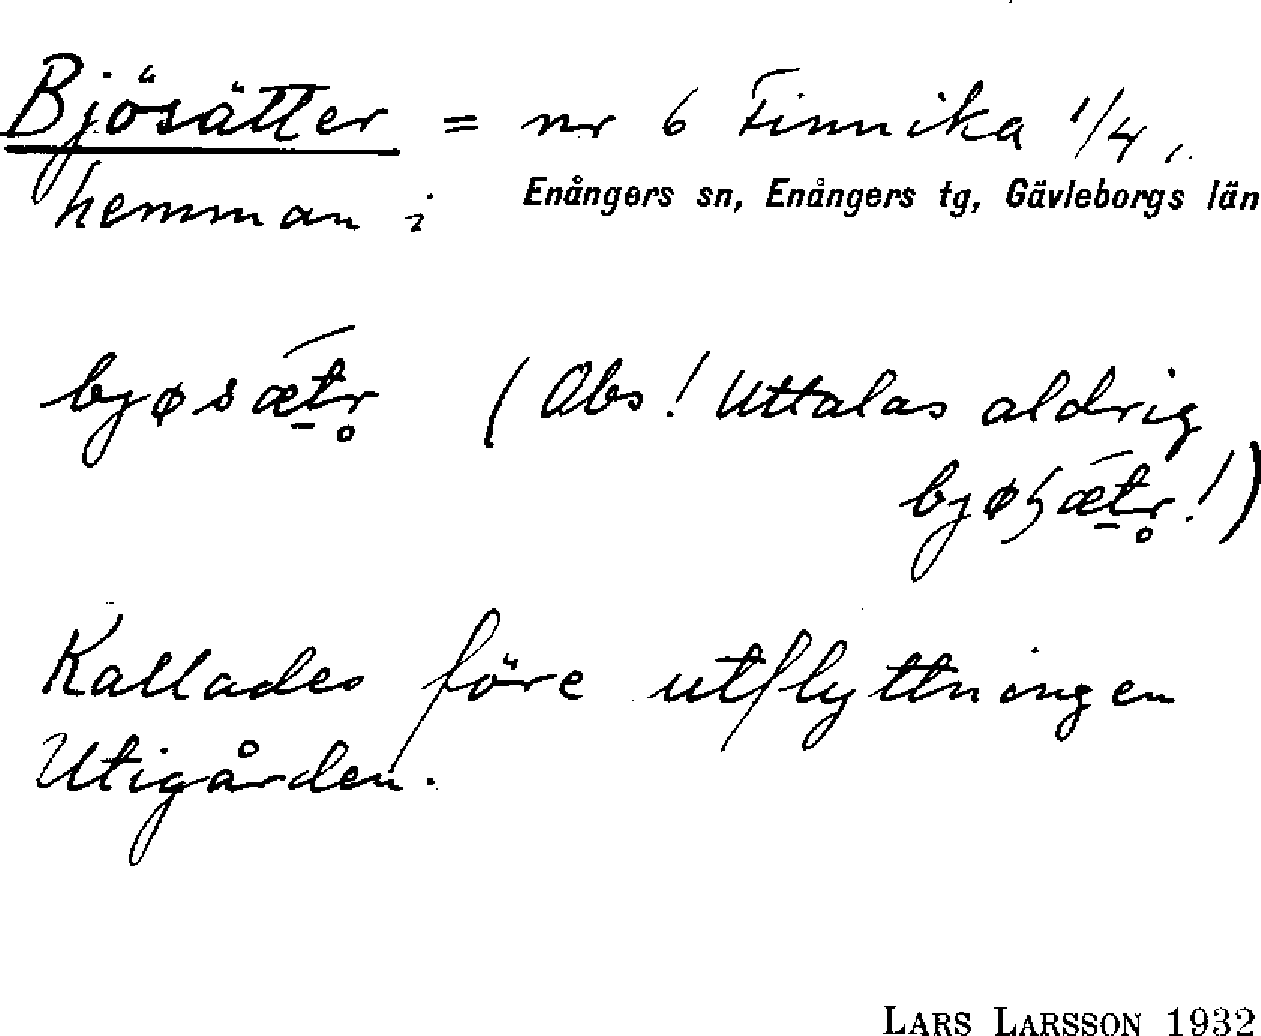 Bjösätter = nr 6 Finnika 1/4,
hemman i Enångers sn, Enångers tg, Gävleborgs län
bjøsǽt̠r̥ (Obs! Uttalas aldrig
bjøʂǽt̠r̥!)
Kallades före utflyttningen
Utigården.
LARS LARSSON 1932